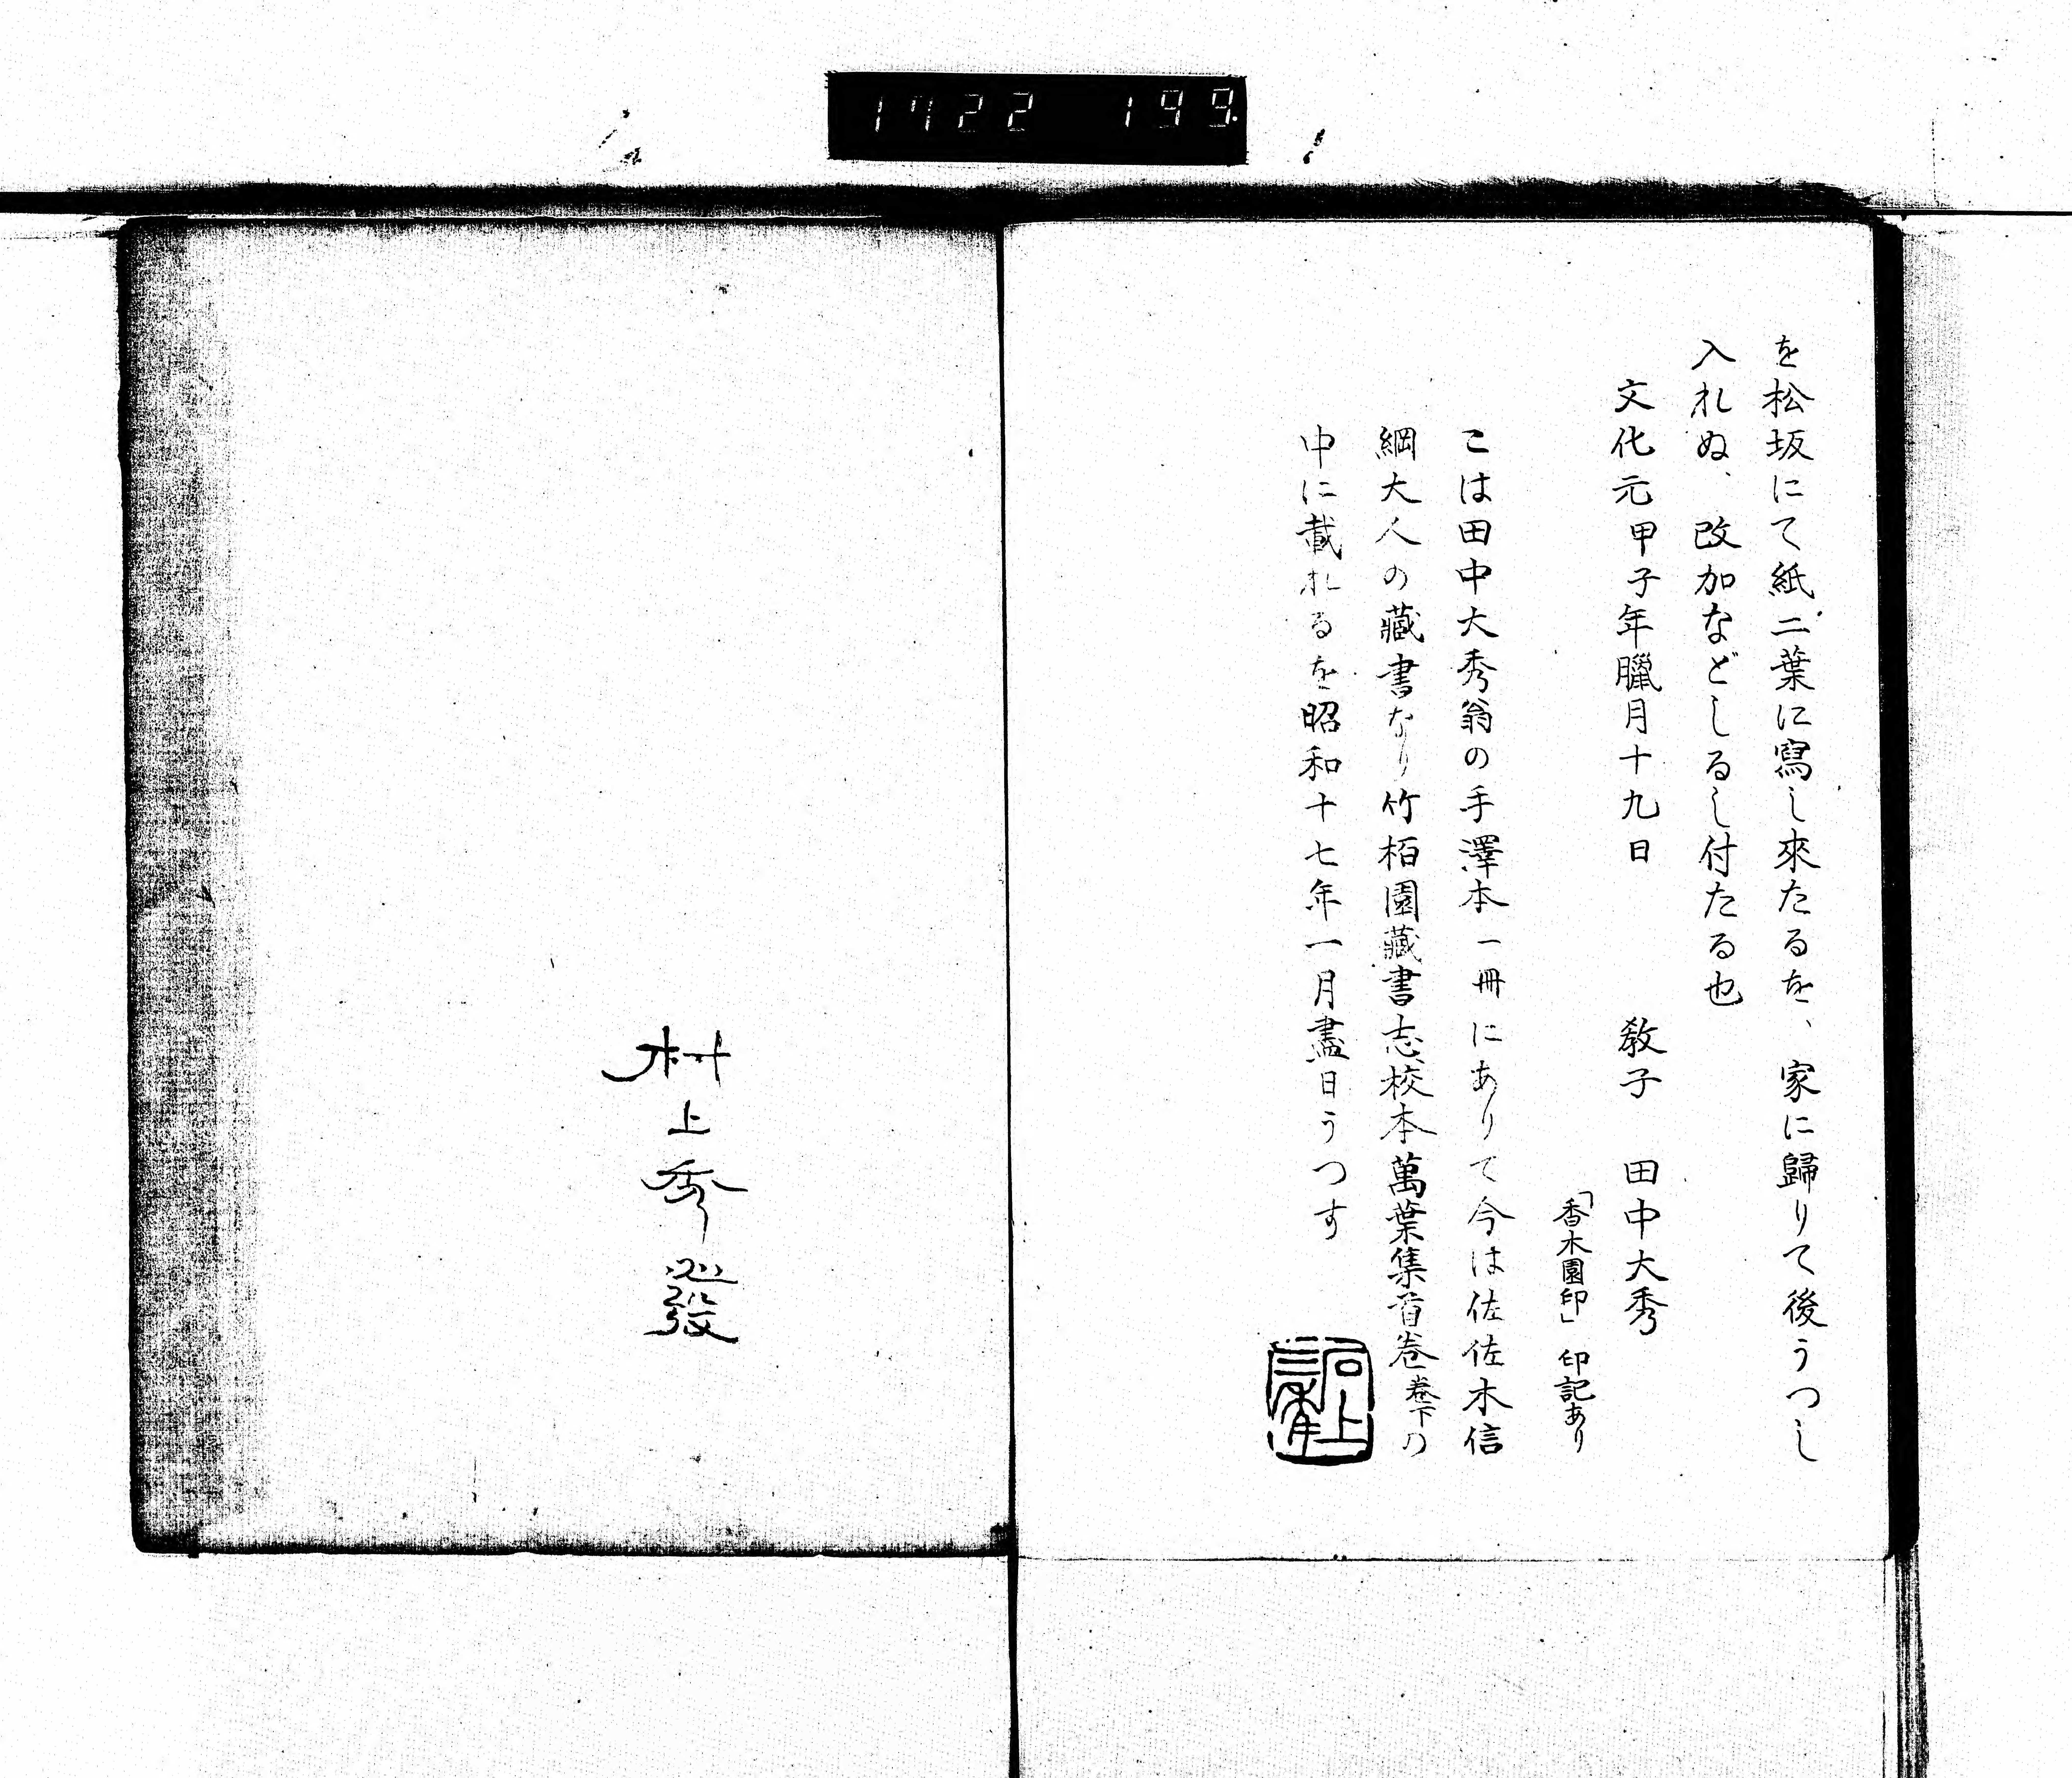 1722 199
を松坂にて紙二葉に寫し來たるを、家に歸りて後うつし
入れぬ、改加などしるし付たる也
文化元甲子年臘月十九日 敎子 田中大秀
「香木園印」印記あり
こは田中大秀翁の手澤本一冊にありて今は佐佐木信
綱大人の藏書なり竹柏園藏書志校本萬葉集首卷卷下の
中に載れるを昭和十七年一月盡日うつす
村上秀發